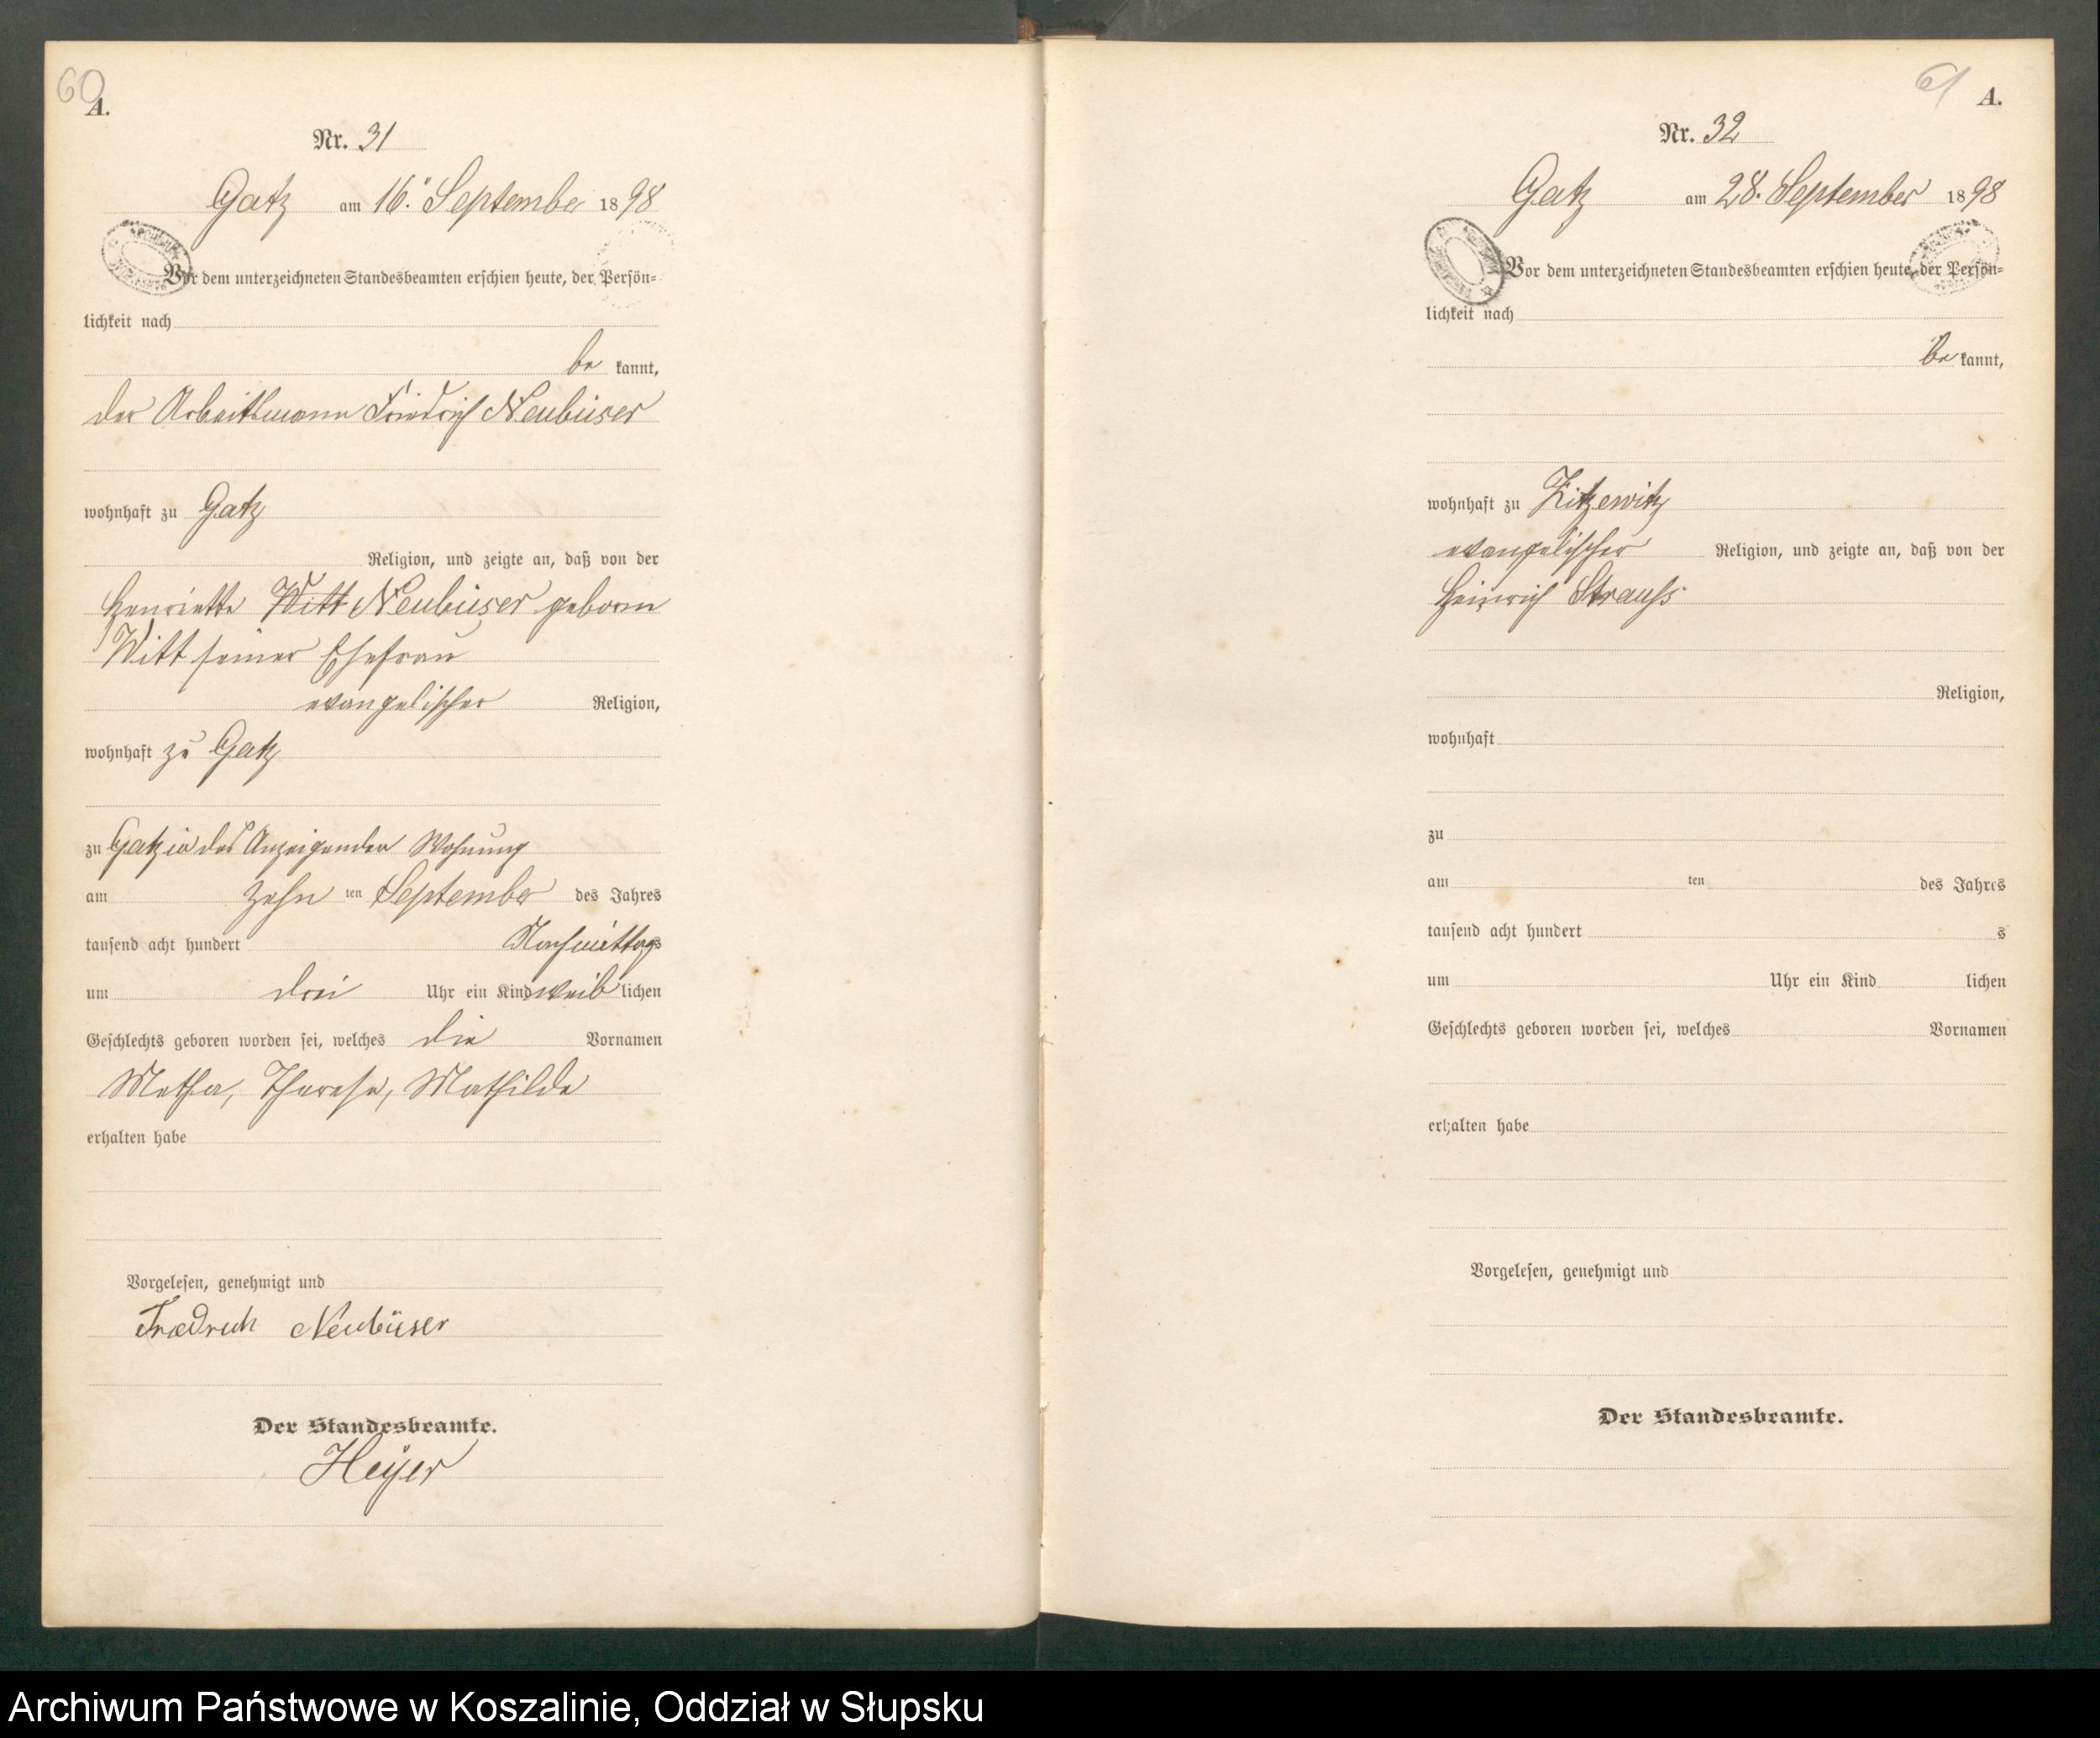 60
A.
Nr. 31
Gatz am 16. September 1898
Vor dem unterzeichneten Standesbeamten erschien heute, der Persön=
lichkeit nach
be kannt,
der Arbeitsmann Friedrich Neubüser
wohnhaft zu Gatz
Religion, und zeigte an, daß von der
Henriette Witt Neubüser geborn
Witt seiner Ehefrau
evangelischer Religion,
wohnhaft zu Gatz
zu Gatz in des Anzeigenden Wohnung
am zehn ten September des Jahres
tausend acht hundert Nachmittags
um drei Uhr ein Kind weiblichen
Geschlechts geboren worden sei, welches die Vornamen
Metha, Therese, Mathilde
erhalten habe
Vorgelesen, genehmigt und
Friedrich Neubüser
Der Standesbeamte.
Heyer
61
A.
Nr. 32
Gatz am 28. September 1898
Vor dem unterzeichneten Standesbeamten erschien heute, der Persön=
lichkeit nach
be kannt,
wohnhaft zu Zitzewitz
evangelischer Religion, und zeigte an, daß von der
Heinrich Strauss
Religion,
wohnhaft
zu
am ten des Jahres
tausend acht hundert s
um Uhr ein Kind lichen
Geschlechts geboren worden sei, welches Vornamen
erhalten habe
Vorgelesen, genehmigt und
Der Standesbeamte.
Archiwum Państwowe w Koszalinie, Oddział w Słupsku